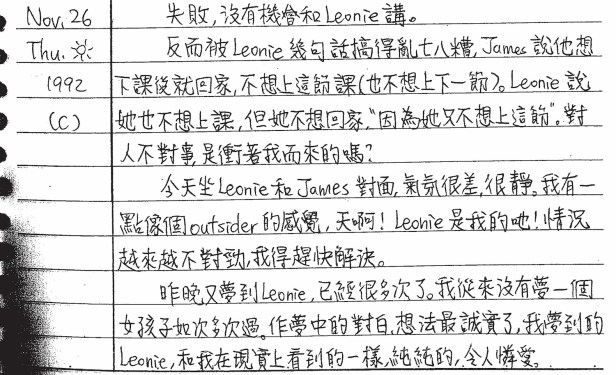 Nov. 26 失敗，沒有機會和Leonie講。
Thu. ☼ 反而被Leonie幾句話搞得亂七八糟，James說他想
1992 下課後就回家，不想上這節課(也不想上下一節)。Leonie說
(C) 她也不想上課，但她不想回家，"因為她只不想上這節"。對
人不對事，是衝著我而來的嗎？
今天坐Leonie和James對面，氣氛很差，很靜。我有一
點像個outsider的感覺，天啊！Leonie是我的吔！情況
越來越不對勁，我得趕快解決。
昨晚又夢到Leonie，已經很多次了。我從來沒有夢一個
女孩子如次多次過。作夢中的對白、想法最誠實了，我夢到的
Leonie，和我在現實上看到的一樣，純純的，令人憐愛。